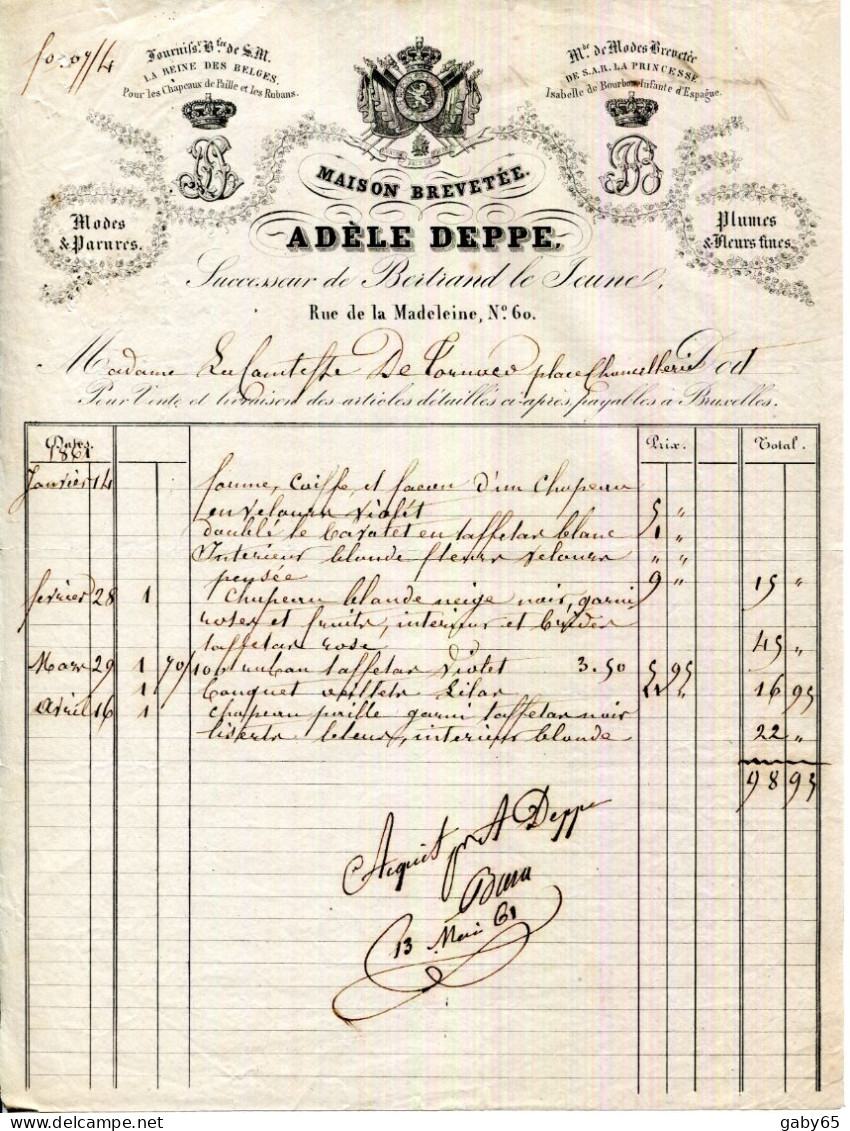 Fourniss.r B.tée de S.M.
LA REINE DES BELGES.
Pour les Chapeaux de Paille et les Rubans.
M.de de Modes Brevetée
DE S.A.R. LA PRINCESSE
Isabelle de Bourbon Infante d'Espagne.
MAISON BREVETÉE.
Modes
& Parures.
Plumes
& fleurs fines.
ADÈLE DEPPE,
Successeur de Bertrand le Jeune,
Rue de la Madeleine, N.º 60.
Madame La Comtesse De place Chancellerie Doit
Pour Vente et livraison des articles détaillés ci-après, payables à Bruxelles.
Dates. Prix. Total.
1861
Janvier 14 forme, coiffe, et facon d'un chapeau
en velours violet 5 "
doublé le bavolet en taffetas blanc 1 "
Interieur blonde fleurs velours " "
pensée 9 " 15 "
fevrier 28 1 chapeau blonde neige noir, garni
roses et fruits, interieur et brides
taffetas rose 45 "
Mars 29 1 70/100 ruban taffetas violet 3.50 5 95
1 bouquet lilas 16 95
Avril 16 1 chapeau paille garni taffetas noir
liserts bleus, interieur blonde 22 "
98 95
Acquit pr A Deppe
13 Mai 61
gaby65